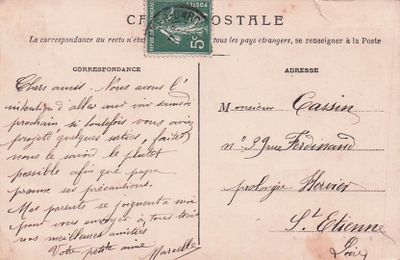 CARTE POSTALE
La correspondance au recto n'est tous les pays étrangers, se renseigner à la Poste
CORRESPONDANCE
Chers amis. Nous avons l'
intention d'aller vous voir samedi
prochain si toutefois vous avez
projeté quelques sorties, faites
nous le savoir le plutôt
possible afin que papa
prenne ses précautions.
Mes parents se joignent a moi
pour vous envoyer à tous trois
nos meilleures amitiés
Votre petite amie Marcelle
ADRESSE
Monsieur Cassin
n° 29 rue Ferdinand
prolongée Hervier
St Etienne
Loire
5c